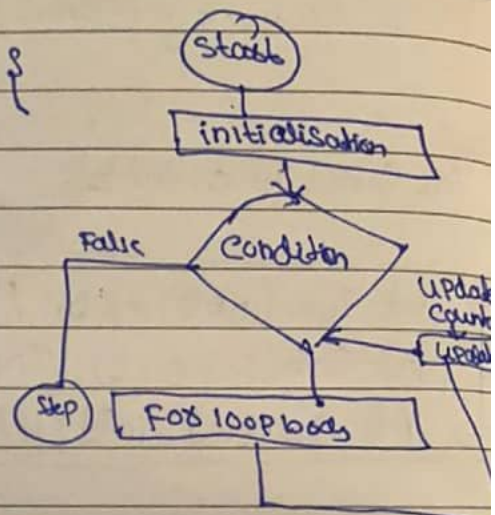 {
Start
initialisation
False
Condition
Update
Count
Updat
Stop
For loop body